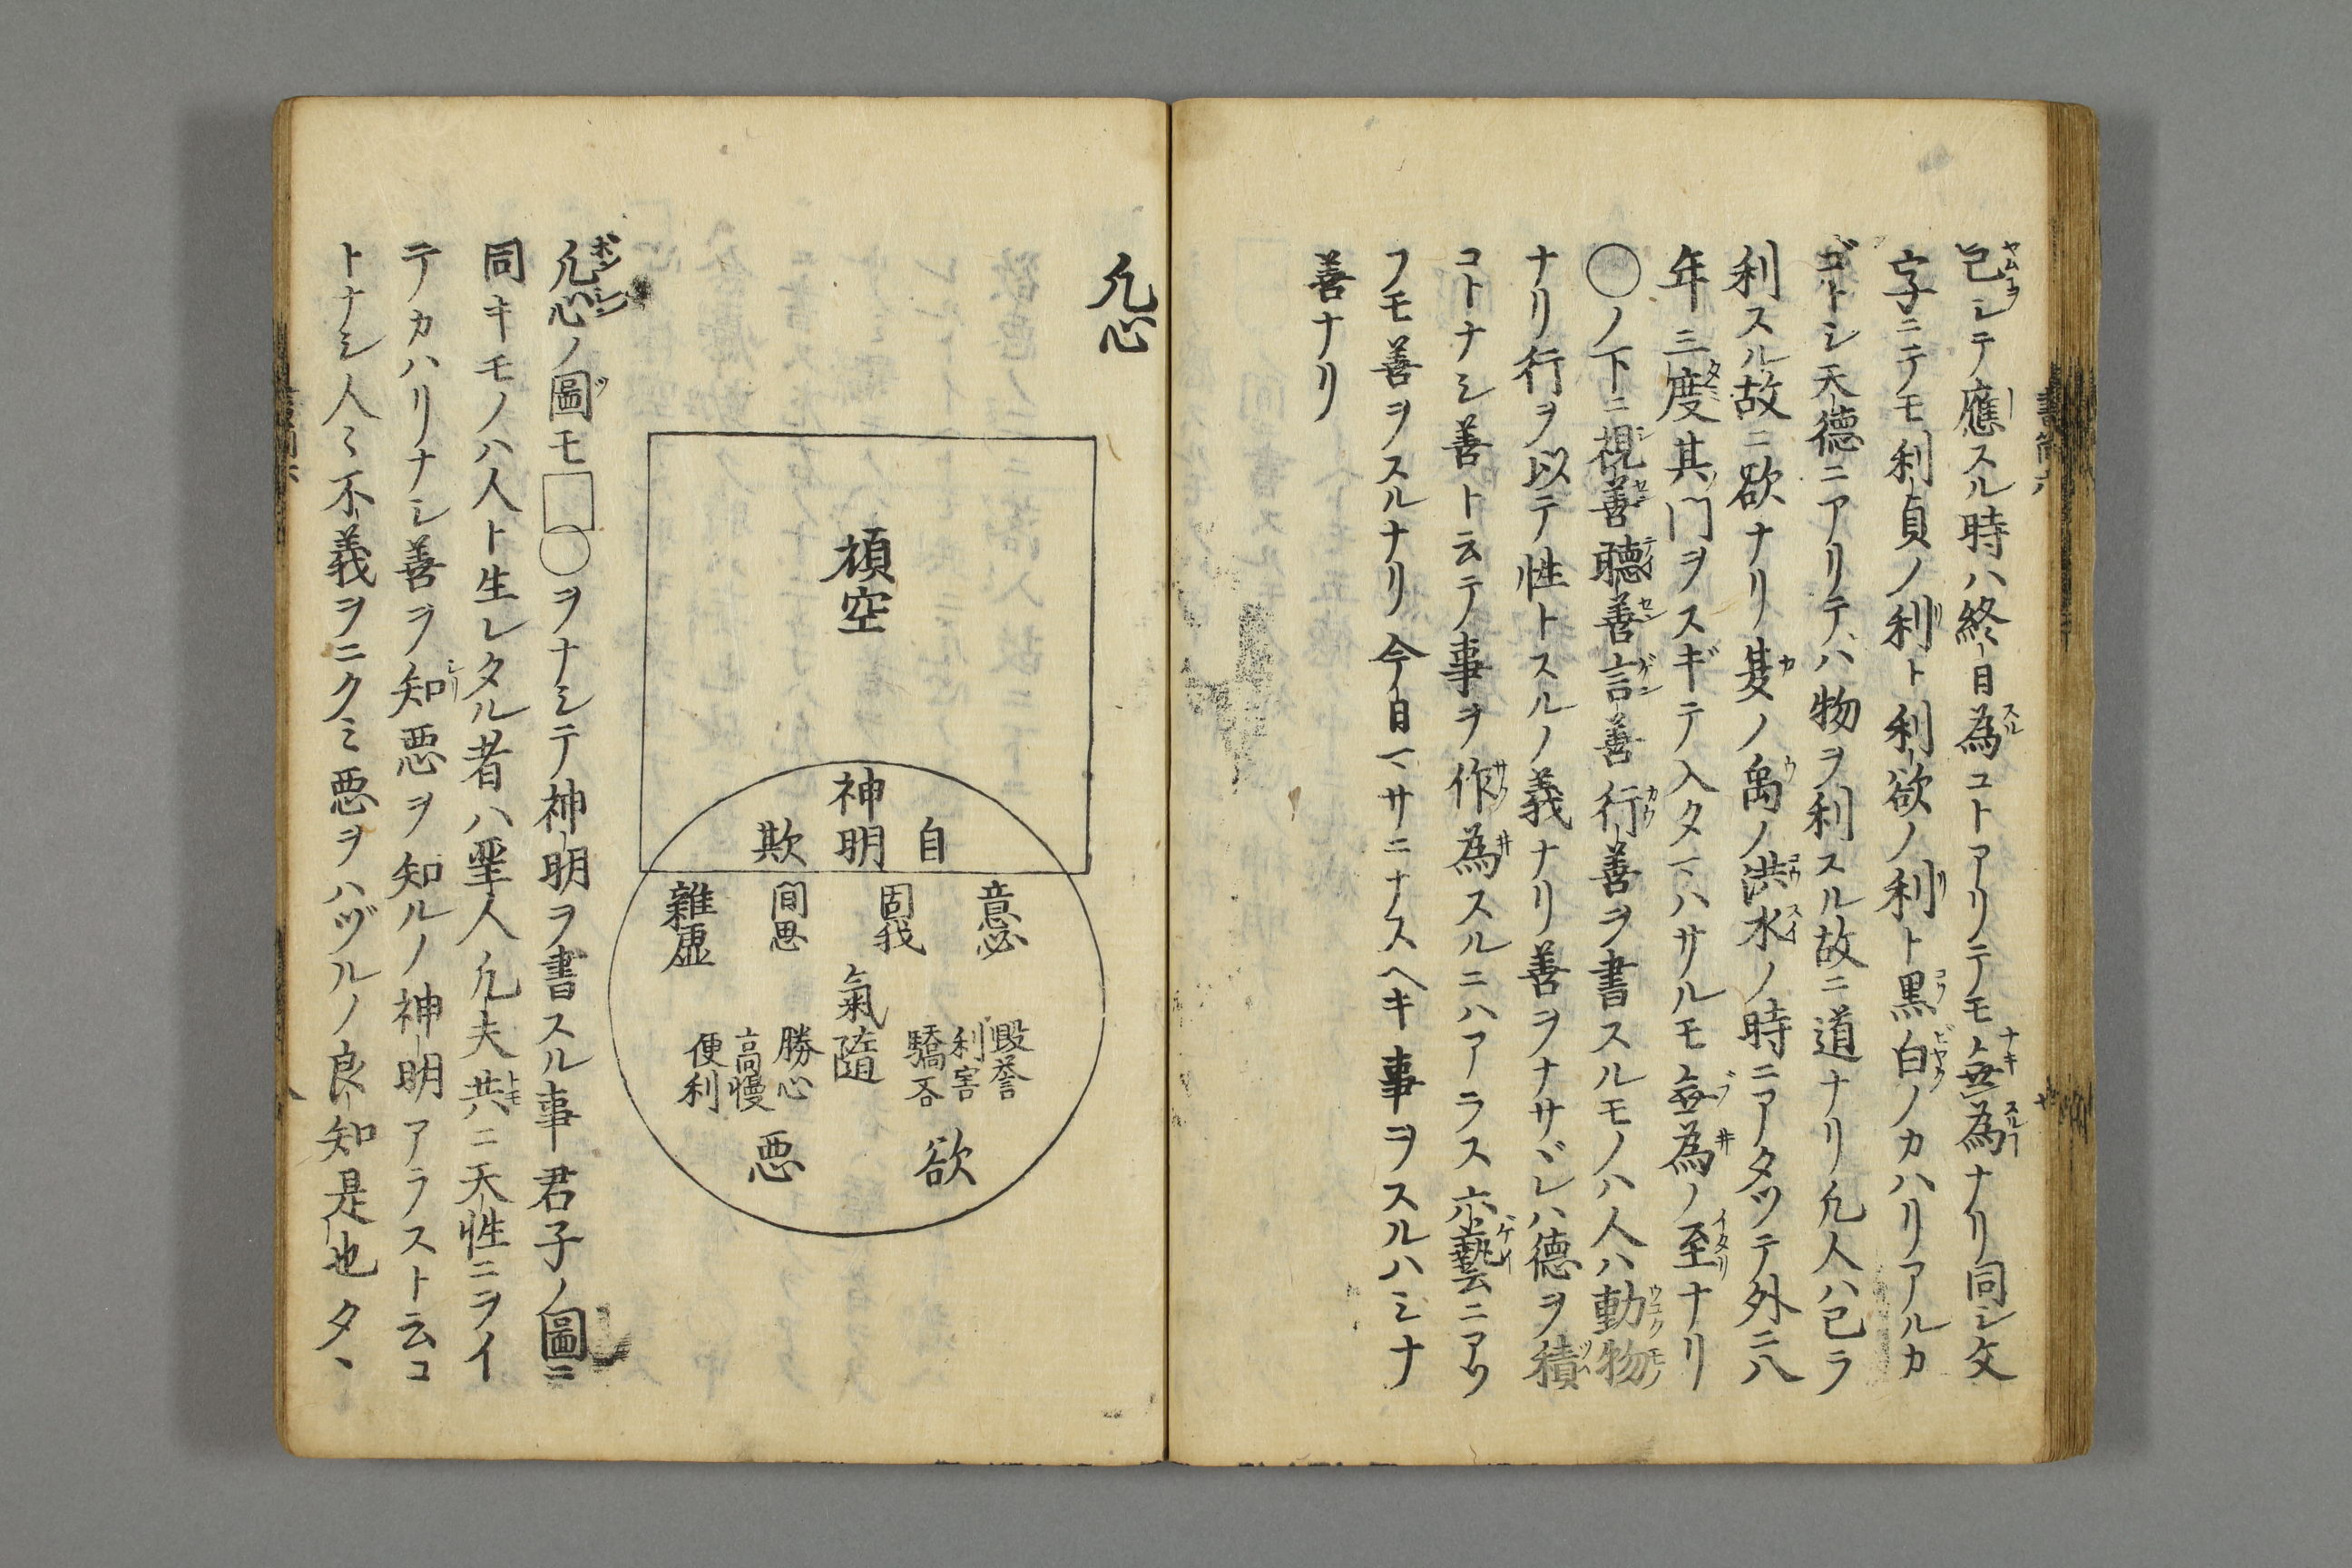 已シテ應スル時ハ終日為コトアリテモ無為ナリ同シ文
字ニテモ利貞ノ利ト利欲ノ利ト黒白ノカハリアルカ
ゴトシ天徳ニアリテハ物ヲ利スル故ニ道ナリ凢人ハ己ヲ
利スル故ニ欲ナリ夏ノ禹ノ洪水ノ時ニアタツテ外ニ八
年三度其門ヲスギテ入タマハサルモ無為ノ至ナリ
〇ノ下ニ視善聴善言善行善ヲ書スルモノハ人ハ動物
ナリ行ヲ以テ性トスルノ義ナリ善ヲナサヾレハ徳ヲ積
コトナシ善ト云テ事ヲ作為スルニハアラス六藝ニアソ
フモ善ヲスルナリ今日マサニナスヘキ事ヲスルハミナ
善ナリ
凢心
頑空
神明
自
欺
意必
固我
間思
雜慮
氣隨
毀誉
利害
驕吝
勝心
高慢
便利
欲
悪
凢心ノ圖モ□〇ヲナシテ神明ヲ書スル事君子ノ圖ニ
同キモノハ人ト生レタル者ハ聖人凢夫共ニ天性ニヲイ
テカハリナシ善ヲ知悪ヲ知ルノ神明アラスト云コ
トナシ人〻不義ヲニクミ悪ヲハヅルノ良知是也タヽ